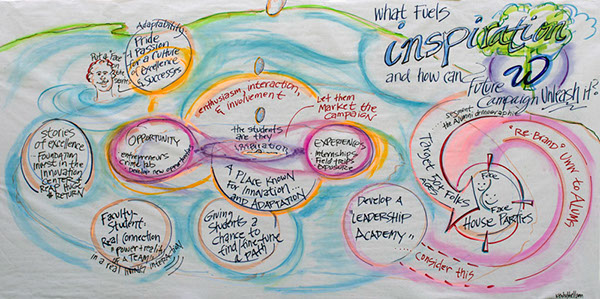 What Fuels
inspiration
and how can
Future
Campaign Unleash it?
Adaptability
Pride
Passion
for a Culture
of Excellence
& Successes
Put a Face
on
the
enthusiasm, interaction,
& involvement
Let them
Market the
Campaign
Stories
of excellence
Foundation
invest in the
innovation
CENTER &
REAP HUGE
RETURN
OPPORTUNITY
entrepreneurs
Develop new
The students
are they
inspiration
EXPERIENCES
internships
Field trips
exposure
A PLACE KNOWN
For INNOVATION
AND ADAPTATION
Faculty-
Student
Real Connection
power + reality
of a TEAM
in a real
Giving
Students a
chance to
find/fine tune
a PATH
Develop a
"LEADERSHIP
ACADEMY"
segment
the Alumni demographic
Target Folks
"Re-Brand" Univ to Alums
Face
to
Face
HOUSE PARTIES
consider this